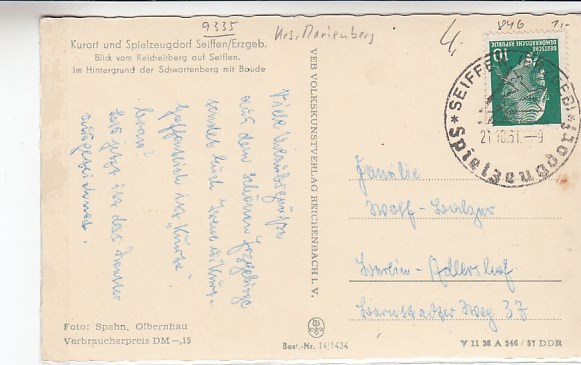 9335
Krs. Marienberg
846
1,-
Kurort und Spielzeugdorf Seiffen/Erzgeb.
Blick vom Reicheltberg auf Seiffen.
Im Hintergrund der Schwartenberg mit Baude
VEB VOLKSKUNSTVERLAG REICHENBACH I. V.
10
DEUTSCHE
DEMOKRATISCHE REPUBLIK
* SEIFFEN (ERZGEB) *
Spielzeugdorf
21.10.61.-9
Viele
aus dem schönen Erzgebirge
sendet Euch
Hoffentlich ist "Kurti"
brav?
Bis jetzt ist das Wetter
ausgezeichnet.
Familie
Wolf-
Berlin-Adlershof
Weg 37
Foto: Spahn, Olbernhau
Verbraucherpreis DM -,15
Best.-Nr. 14/1434
V 11 28 A 346 / 57 DDR